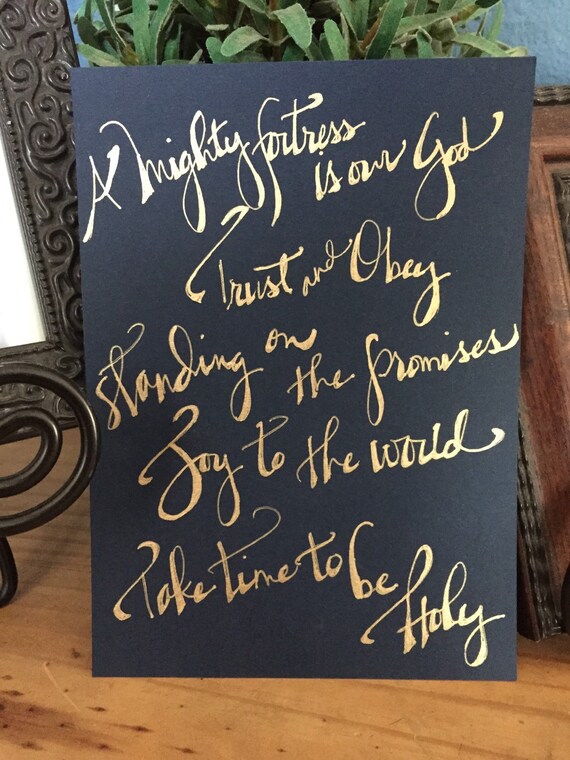 A Mighty fortress is our God
Trust and Obey
standing on the promises
Joy to the world
Take time to be Holy